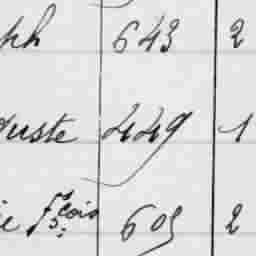 ph 643 2
uste 449 1
ie fcois 605 2